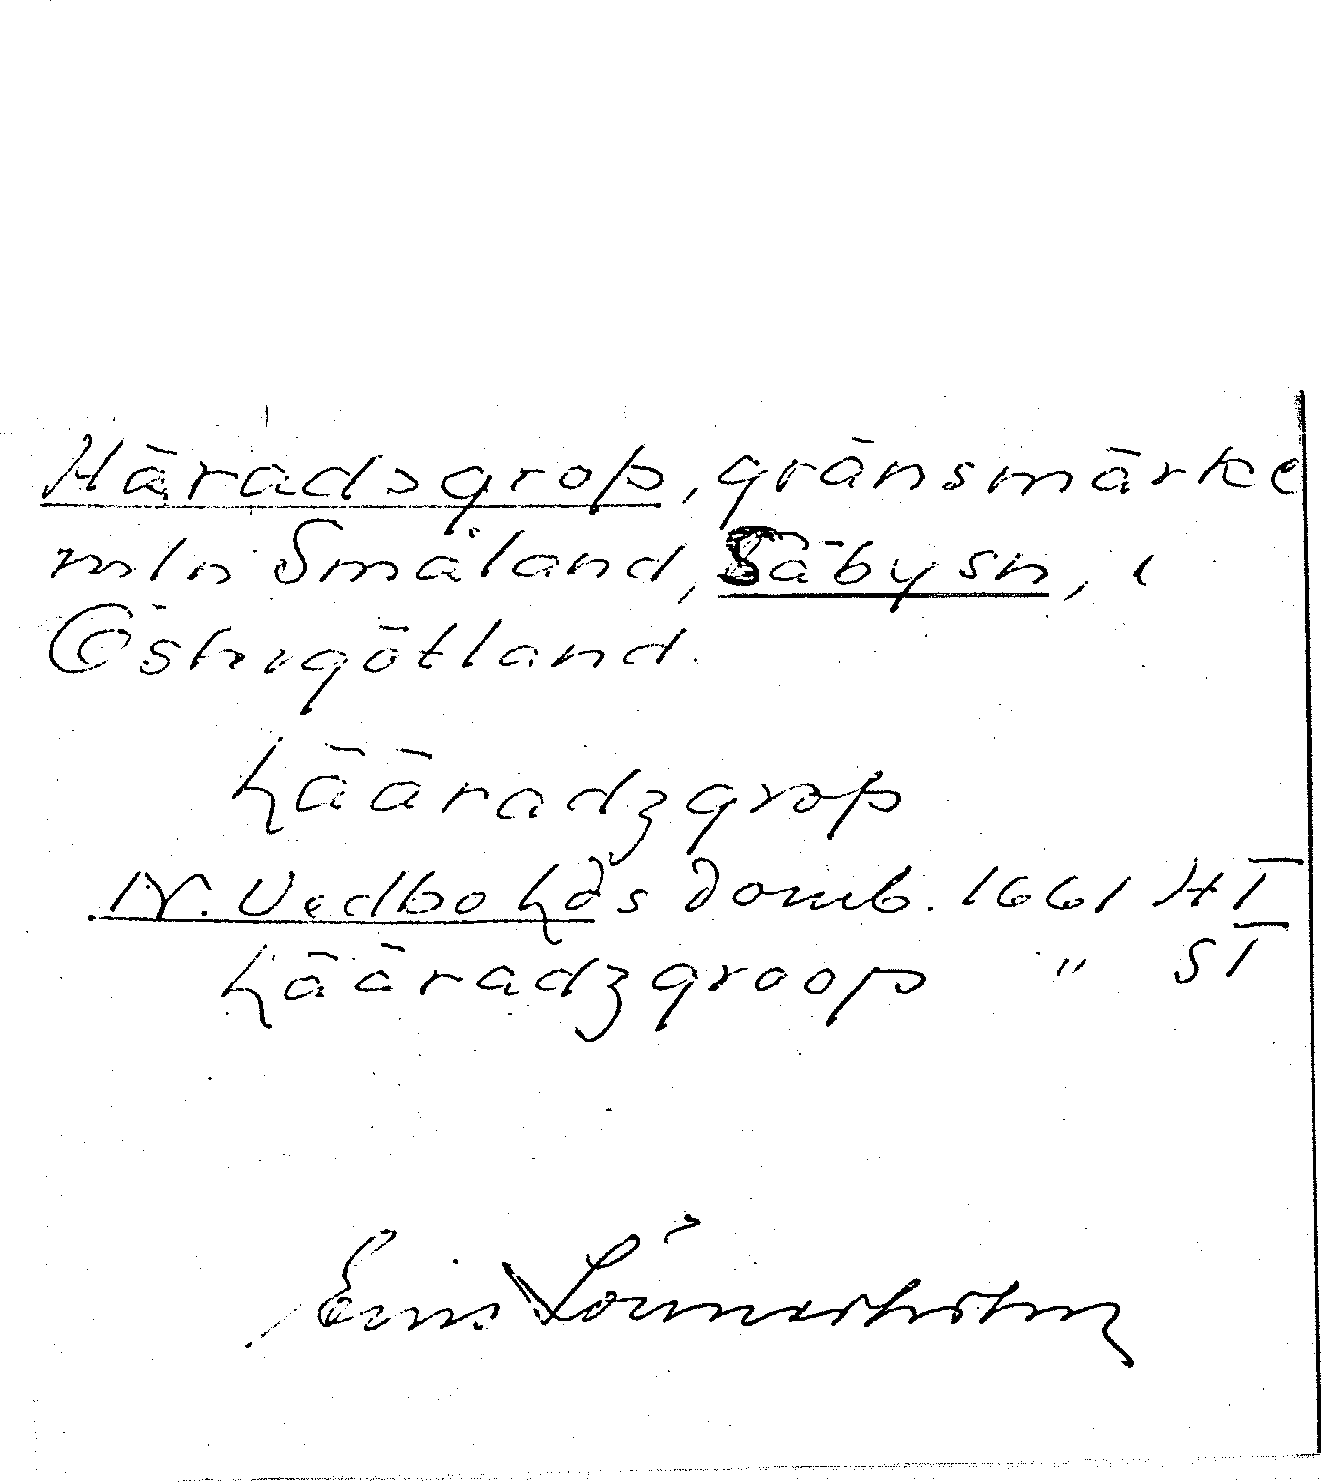 Häradsgrop, gränsmärke
mln Småland, Säby sn, i
Östergötland.
hääradzgrop
N. Vedbo hds domb. 1661 HT
hääradzgroop " ST
Lönnerholm